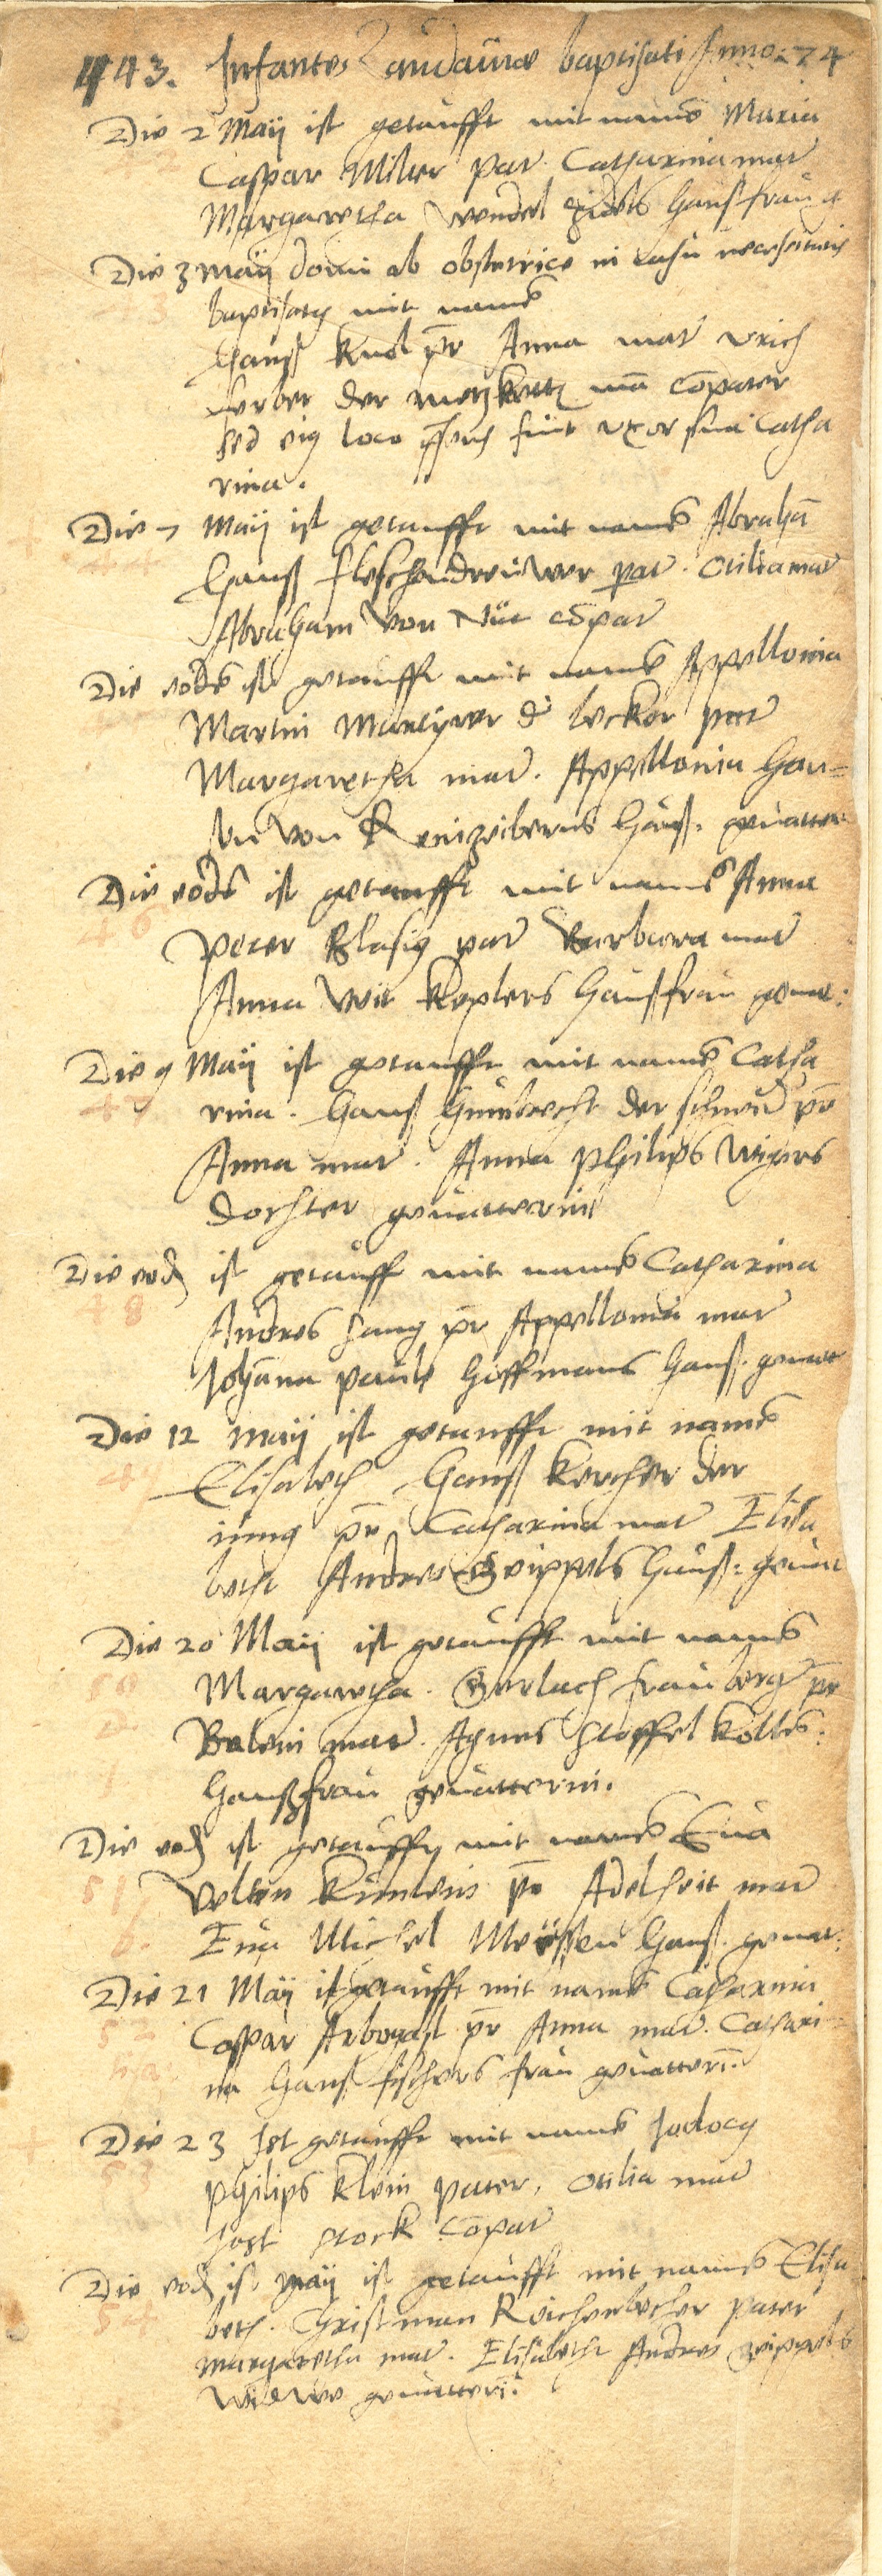 43. Infantes Landauiae baptisati Anno. 74
Die 2 Maij ist getaufft mit namē Maria
Caspar Miler pat. Catharina mat
Margaretha Wendel Hausfrau
Die 3 maij domi ab obstetrice in casu necessitatis
baptisatus mit namē
Hanß Knol pr̄ Anna mat Vrich
ferber der metzker compater
sed eius loco fuit vxor sua Catha
rina.
Die 7 Maij ist getaufft mit namē Abrahā
Hanß pat. Otilia mat
Abraham von cōpat
Die eodē ist getaufft mit namē Appollonia
Martin der becker pat
Margaretha mat. Appollonia Han=
sen von Hauß. geuatter
Die eodē ist getaufft mit namē Anna
Peter Blasig pat Barbara mat
Anna Veit Keplers Haußfrau geuat:
Die 9 Maij ist getaufft mit namē Catha
rina. Hanß der schmid pr̄
Anna mat. Anna Philips
dochter geuatterin
Die eod ist getaufft mit namē Catharina
Andres Hang pr̄ Appollonia mat
Johāna Pauls Hoffmans Hauß. geuatt
Die 12 maij ist getaufft mit namē
Elisabeth Hanß Kercher der
iung pr̄ Catharina mat Elisa
beth Andres Geippels Hauß: geuat
Die 20 Maij ist getaufft mit namē
Margaretha. Gerlach frauberg pr̄
mat. Agnes Stoffel Koltes.
Haußfrau geuatterin.
Die eod ist getaufft mit namē Eua
Velten pr̄ Adelheit mat
Eua Michel Hauß. geuat:
Die 21 Maij ist getaufft mit namē Catharina
Caspar Arbogast pr̄ Anna mat. Cathari=
na Hanß fischers frau geuatteri.
Die 23 Ist getaufft mit namē Jodocus
Philips Klein pater, Otilia mat
Jost Stork Cōpat
Die eod ist maij ist getaufft mit namē Elisa
beth. Christman Reichenbecher pater
Margaretha mat. Elisabetha Andres Geippels
Widwe geuatteri.